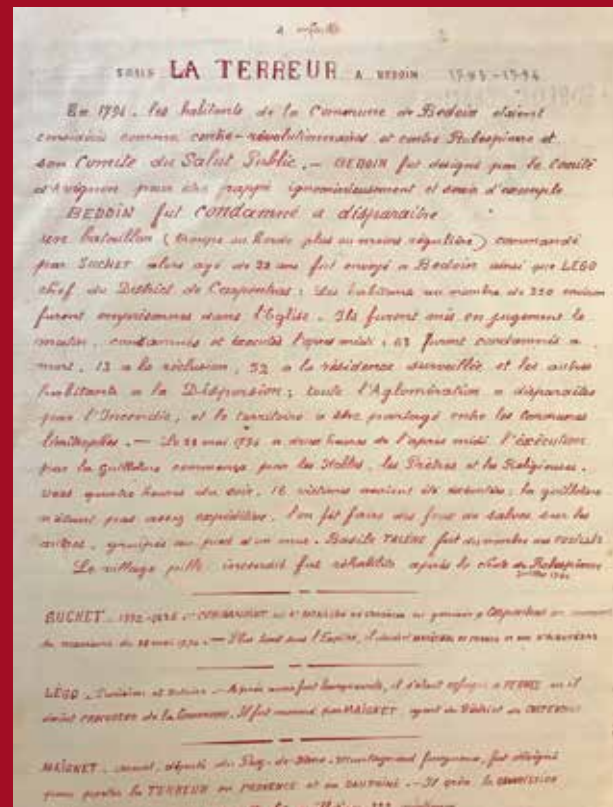 SOUS LA TERREUR A BEDOIN 1793-1794
En 1794, les habitants de la Commune de Bedoin étaient
considérés comme contre-révolutionnaires et contre Robespierre et
son Comité du Salut Public. — BEDOIN fut désigné par le Comité
d'Avignon pour être frappé ignominieusement et servir d'exemple
BEDOIN fut condamné a disparaitre
une bataillon (troupe ou horde plus ou moins régulière) commandé
par SUCHET alors agé de 22 ans fut envoyé a Bedoin ainsi que LEGO
chef du District de Carpentras; Les habitants au nombre de 250 environ
furent emprisonnés dans l'Eglise. Ils furent mis en jugement le
matin, condamnés et éxécutés l'apres midi; 63 furent condamnés a
mort, 13 a la réclusion, 52 a la résidence surveillée, et les autres
habitants a la Dispersion; toute l'Aglomération a disparaitre
par l'Incendie, et le territoire a être partagé entre les Communes
limitrophes. — Le 28 mai 1794 a deux heures de l'apres midi l'éxécution
par la guillotine commença par les Nobles, les Prêtres et les Religieuses.
vers quatre heures du soir, 16 victimes avaient été éxécutées, la guillotine
n'étant pas assez expéditive, l'on fit faire des feux de salves sur les
autres, groupés au pied d'un mur. Basile TALENE fut du nombre des FUSILLÉS
Le village pillé, incendié fut réhabilité après la chute de Robespierre
SUCHET COMMANDANT Carpentras
du massacre du 28 mai 1794. — Plus tard sous l'Empire, il devint
LEGO — il s'était refugié a PERNES ou il
devint de la Commune. Il fut nommé par MAIGNET, agent du District de CARPENTRAS
MAIGNET député du Puy-de-Dôme. Montagnard fut désigné
pour porter la TERREUR en PROVENCE et en DAUPHINÉ. — Il créa la COMMISSION